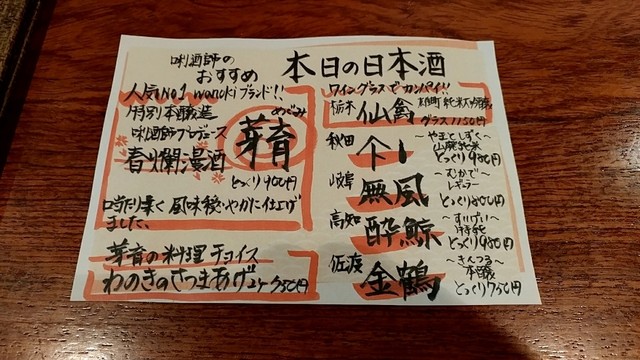 唎酒師の
おすすめ
人気No1 wanokiブランド!!
特別本醸造
めぐみ
唎酒師プロデュース
芽育
春り爛漫酒
とっくり900円
味わり
風味穏やかに仕上げ
ました。
芽育の料理チョイス
わのきのさつまあげ2ケ750円
本日の日本酒
ワイングラスでカンパイ!!
栃木
仙禽
雄町 純米大吟醸
グラス1150円
秋田
~やまとしずく~
山廃純米
とっくり980円
岐阜
無風
~むかで~
レギュラー
とっくり800円
高知
酔鯨
~すいげい~
特純
とっくり980円
佐渡
金鶴
~きんつる~
本醸
とっくり750円